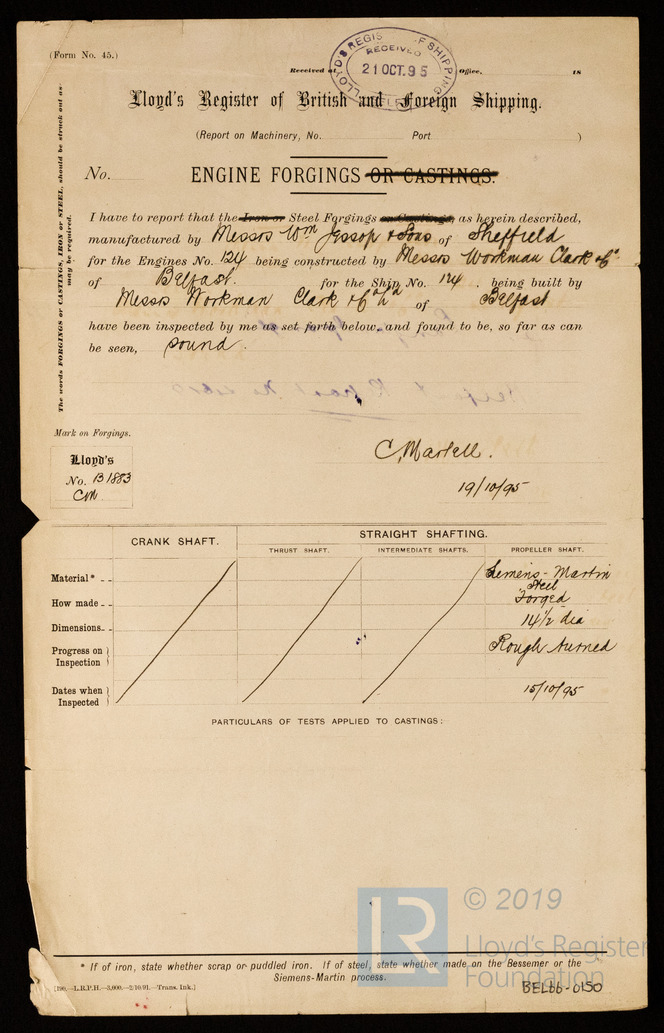 (Form No. 45.)
LLOYD'S REGIS OF SHIPPING
RECEIVED
21 OCT. 95
Received at Office, 18
Lloyd's Register of British and Foreign Shipping.
(Report on Machinery, No. Port )
No. ENGINE FORGINGS OR CASTINGS.
The words FORGINGS or CASTINGS, IRON or STEEL, should be struck out as may be required.
I have to report that the Iron or Steel Forgings or Castings, as herein described,
manufactured by Messrs Wm Jessop & Sons of Sheffield
for the Engines No. 124 being constructed by Messrs Workman Clark & Co
of Belfast. for the Ship No. 124 , being built by
Messrs Workman Clark & Co Ld of Belfast
have been inspected by me as set forth below and found to be, so far as can
be seen, sound.
Mark on Forgings.
Lloyd's
No. B1883
CM.
C. Martell.
19/10/95
CRANK SHAFT. STRAIGHT SHAFTING.
THRUST SHAFT. INTERMEDIATE SHAFTS. PROPELLER SHAFT.
Material* Siemens-Martin
Steel
How made Forged
Dimensions 14½ dia
Progress on Inspection Rough turned
Dates when Inspected 15/10/95
PARTICULARS OF TESTS APPLIED TO CASTINGS:
* If of iron, state whether scrap or puddled iron. If of steel, state whether made on the Bessemer or the
Siemens-Martin process.
[190.-L.R.P.H.-3,000.-2/10/91.-Trans. Ink.]
BEL66-0150
LR
© 2019
Lloyd's Register
Foundation